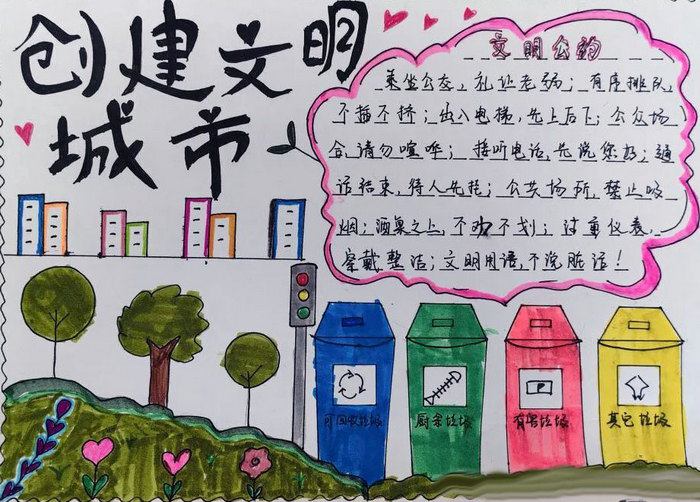 创建文明
城市
文明公约
乘坐公交，礼让老弱；有序排队，
不插不挤；出入电梯，先上后下；公众场
合，请勿喧哗；接听电话，先说您好；通
话结束，待人先挂；公共场所，禁止吸
烟；酒桌之上，不劝不划；注重仪表，
穿戴整洁；文明用语，不说脏话！
可回收垃圾
厨余垃圾
有害垃圾
其它垃圾